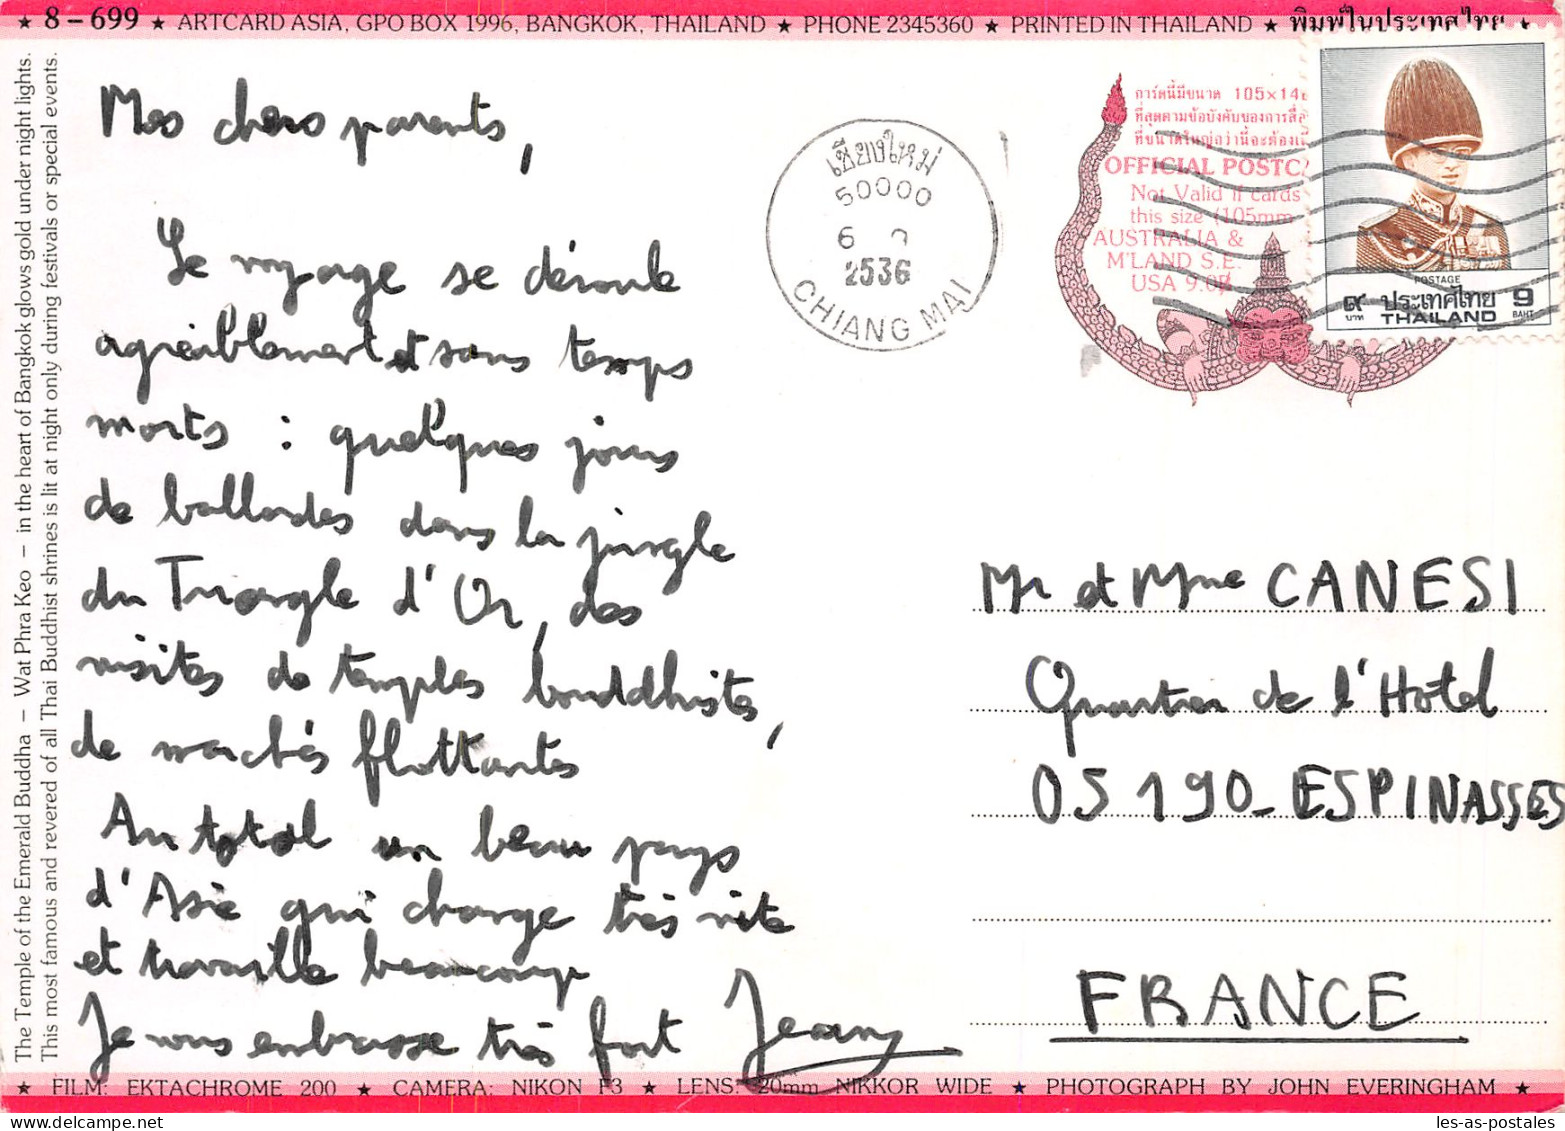 ★ 8-699 ★ ARTCARD ASIA, GPO BOX 1996, BANGKOK, THAILAND ★ PHONE 2345360 ★ PRINTED IN THAILAND ★ พิมพ์ในประเทศไทย ★
The Temple of the Emerald Buddha – Wat Phra Keo – in the heart of Bangkok glows gold under night lights.
This most famous and revered of all Thai Buddhist shrines is lit at night only during festivals or special events.
Mes chers parents,
Le voyage se déroule
agréablement et sans temps
morts : quelques jours
de ballades dans la jungle
du Triangle d'Or, des
visites de temples bouddhistes,
de marchés flottantes
Au total un beau pays
d'Asie qui change très vite
et travaille beaucoup
Je vous embrasse très fort Jeany
เชียงใหม่
50000
6
2536
CHIANG MAI
การ์ดนี้มีขนาด 105×14
ที่สุดตามข้อบังคับของการสื่
ที่ขนาดใหญ่กว่านี้จะต้องเ
OFFICIAL POSTC
Not Valid if cards
this size (105mm
AUSTRALIA &
M'LAND S.E.
USA 9.0฿
POSTAGE
๙ ประเทศไทย 9
บาท THAILAND BAHT
Mr et Mme CANESI
Quartier de l'Hôtel
05190_ ESPINASSES
FRANCE
★ FILM: EKTACHROME 200 ★ CAMERA: NIKON F3 ★ LENS: 20mm NIKKOR WIDE ★ PHOTOGRAPH BY JOHN EVERINGHAM ★
les-as-postales